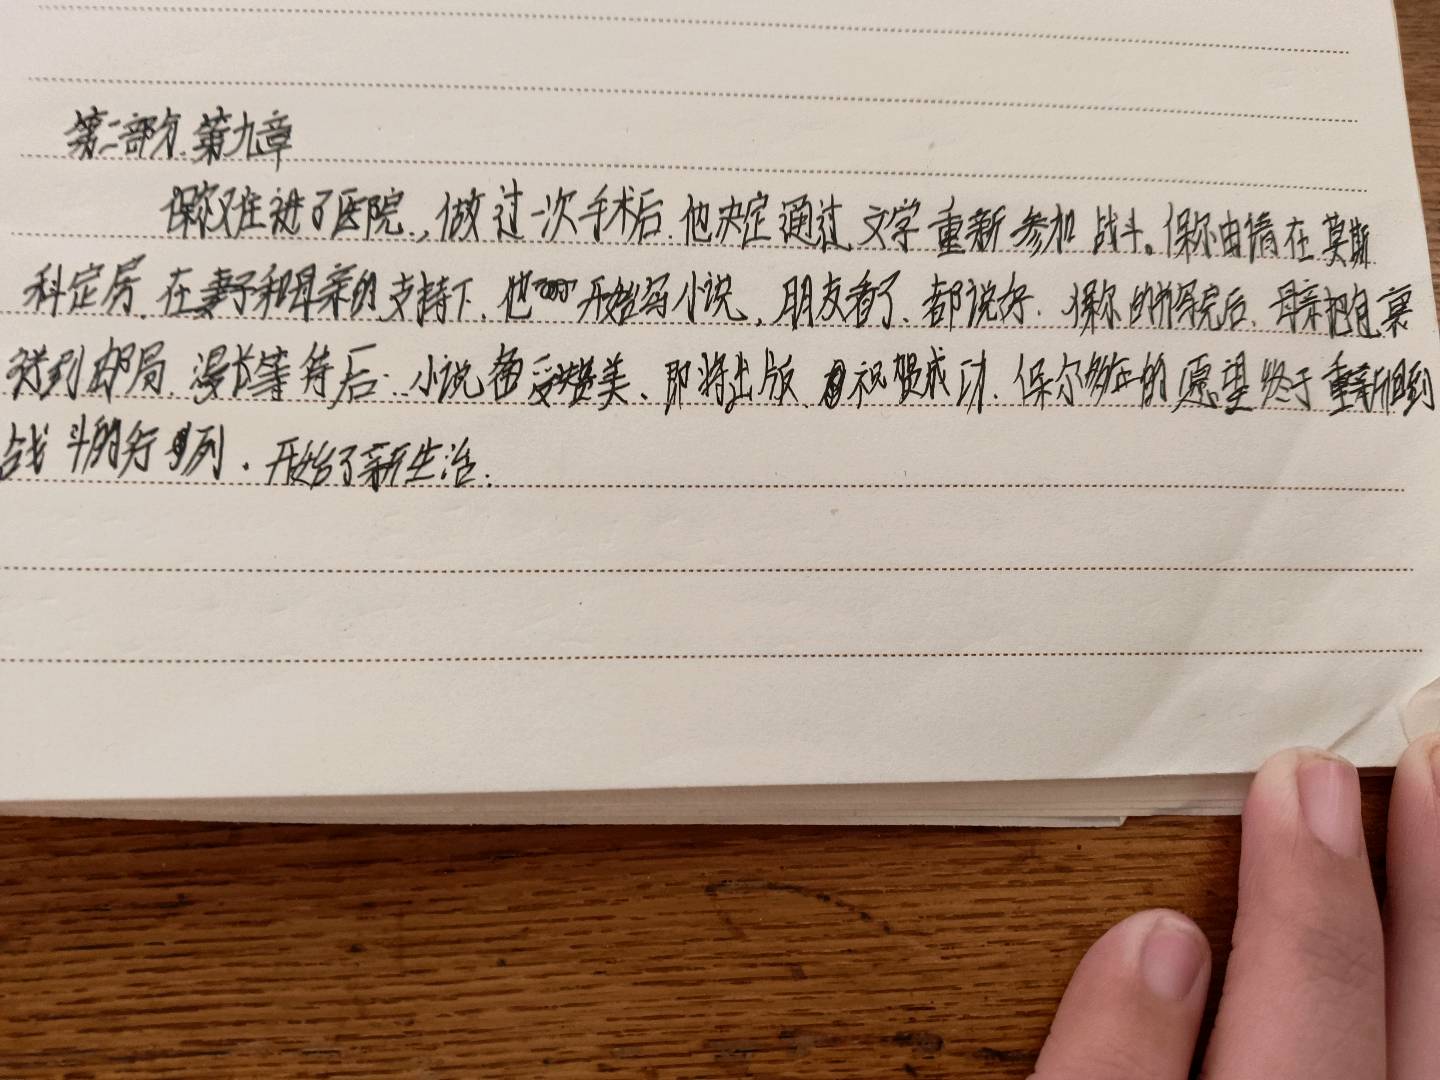 第二部分.第九章
保尔又住进了医院,做过一次手术后.他决定通过文学重新参加战斗。保尔申请在莫斯
科定居.在妻子和母亲的支持下.他开始写小说,朋友看了.都说好.保尔的书写完后.母亲把包裹
送到邮局.漫长等待后.小说备受赞美、即将出版.祝贺成功.保尔多年的愿望终于重新回到
战斗的行列.开始了新生活.